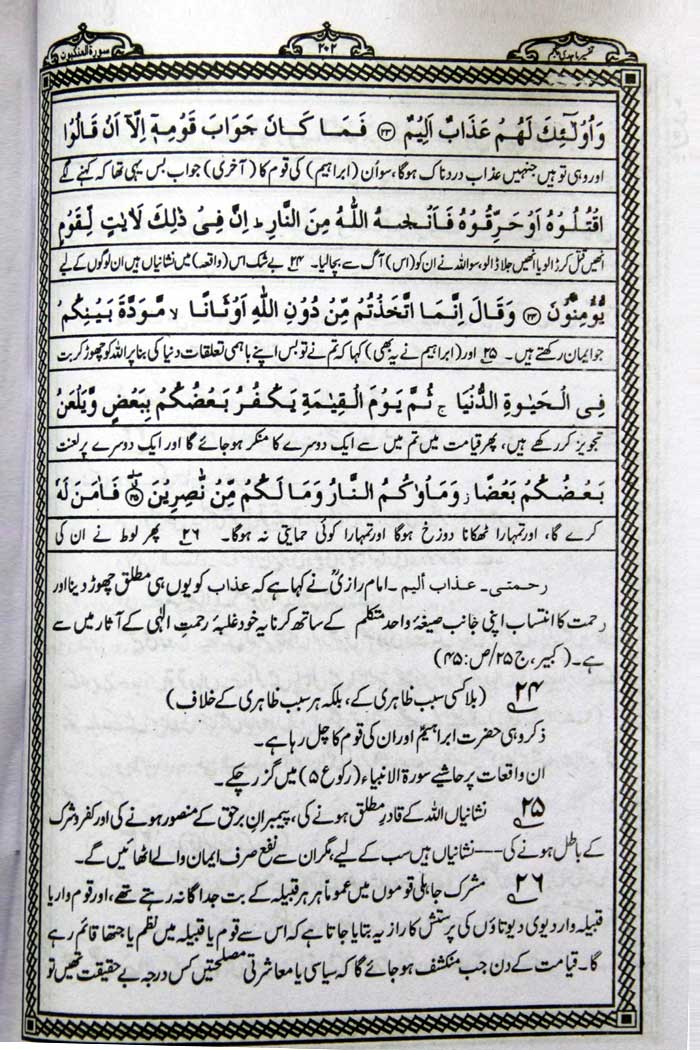 تفسیر ماجدی پنجم
۲۰۲
سورۃ العنکبوت
وَاُولٰٓئِكَ لَهُمْ عَذَابٌ اَلِيْمٌ ﴿۲۳﴾ فَمَا كَانَ جَوَابَ قَوْمِهٖٓ اِلَّآ اَنْ قَالُوا
اور وہی تو ہیں جنہیں عذاب دردناک ہوگا، سو اُن (ابراہیم) کی قوم کا (آخری) جواب بس یہی تھا کہ کہنے لگے
اقْتُلُوْهُ اَوْ حَرِّقُوْهُ فَاَنْجٰىهُ اللّٰهُ مِنَ النَّارِ ؕ اِنَّ فِيْ ذٰلِكَ لَاٰيٰتٍ لِّقَوْمٍ
انھیں قتل کر ڈالو یا انھیں جلا ڈالو، سو اللہ نے ان کو (اس) آگ سے بچا لیا۔ ۲۴ بے شک اس (واقعہ) میں نشانیاں ہیں ان لوگوں کے لیے
يُّؤْمِنُوْنَ ﴿۲۴﴾ وَقَالَ اِنَّمَا اتَّخَذْتُمْ مِّنْ دُوْنِ اللّٰهِ اَوْثَانًا ۙ مَّوَدَّةَ بَيْنِكُمْ
جو ایمان رکھتے ہیں۔ ۲۵ اور (ابراہیم نے یہ بھی) کہا کہ تم نے تو بس اپنے باہمی تعلقات دنیا کی بنا پر اللہ کو چھوڑ کر بت
فِي الْحَيٰوةِ الدُّنْيَا ۚ ثُمَّ يَوْمَ الْقِيٰمَةِ يَكْفُرُ بَعْضُكُمْ بِبَعْضٍ وَّيَلْعَنُ
تجویز کر رکھے ہیں، پھر قیامت میں تم میں سے ایک دوسرے کا منکر ہوجائے گا اور ایک دوسرے پر لعنت
بَعْضُكُمْ بَعْضًا ؗ وَمَاْوٰىكُمُ النَّارُ وَمَا لَكُمْ مِّنْ نّٰصِرِيْنَ ﴿۲۵﴾ فَاٰمَنَ لَهٗ
کرے گا، اور تمہارا ٹھکانا دوزخ ہوگا اور تمہارا کوئی حمایتی نہ ہوگا۔ ۲۶ پھر لوط نے ان کی
رحمتی۔ عذاب الیم۔ امام رازیؒ نے کہا ہے کہ عذاب کو یوں ہی مطلق چھوڑ دینا اور
رحمت کا انتساب اپنی جانب صیغۂ واحد متکلم کے ساتھ کرنا یہ خود غلبۂ رحمتِ الٰہی کے آثار میں سے
ہے۔ (کبیر، ج۲۵/ص:۴۵)
۲۴ (بلا کسی سبب ظاہری کے، بلکہ ہر سبب ظاہری کے خلاف)
ذکر وہی حضرت ابراہیمؑ اور ان کی قوم کا چل رہا ہے۔
ان واقعات پر حاشیے سورۃ الانبیاء (رکوع ۵) میں گزر چکے۔
۲۵ نشانیاں اللہ کے قادرِ مطلق ہونے کی، پیمبرانِ برحق کے منصور ہونے کی اور کفر و شرک
کے باطل ہونے کی ۔۔۔ نشانیاں ہیں سب کے لیے، مگر ان سے نفع صرف ایمان والے اٹھائیں گے۔
۲۶ مشرک جاہلی قوموں میں عموماً ہر ہر قبیلہ کے بت جداگانہ رہتے تھے، اور قوم وار یا
قبیلہ وار دیوی دیوتاؤں کی پرستش کا راز یہ بتایا جاتا ہے کہ اس سے قوم یا قبیلہ میں نظم یا جتھا قائم رہے
گا۔ قیامت کے دن جب منکشف ہوجائے گا کہ سیاسی یا معاشرتی مصلحتیں کس درجہ بے حقیقت تھیں تو